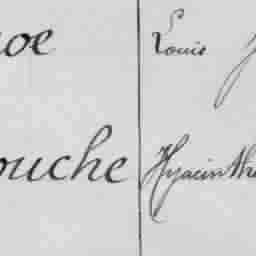 oe Louis
ouche Hyacinthe